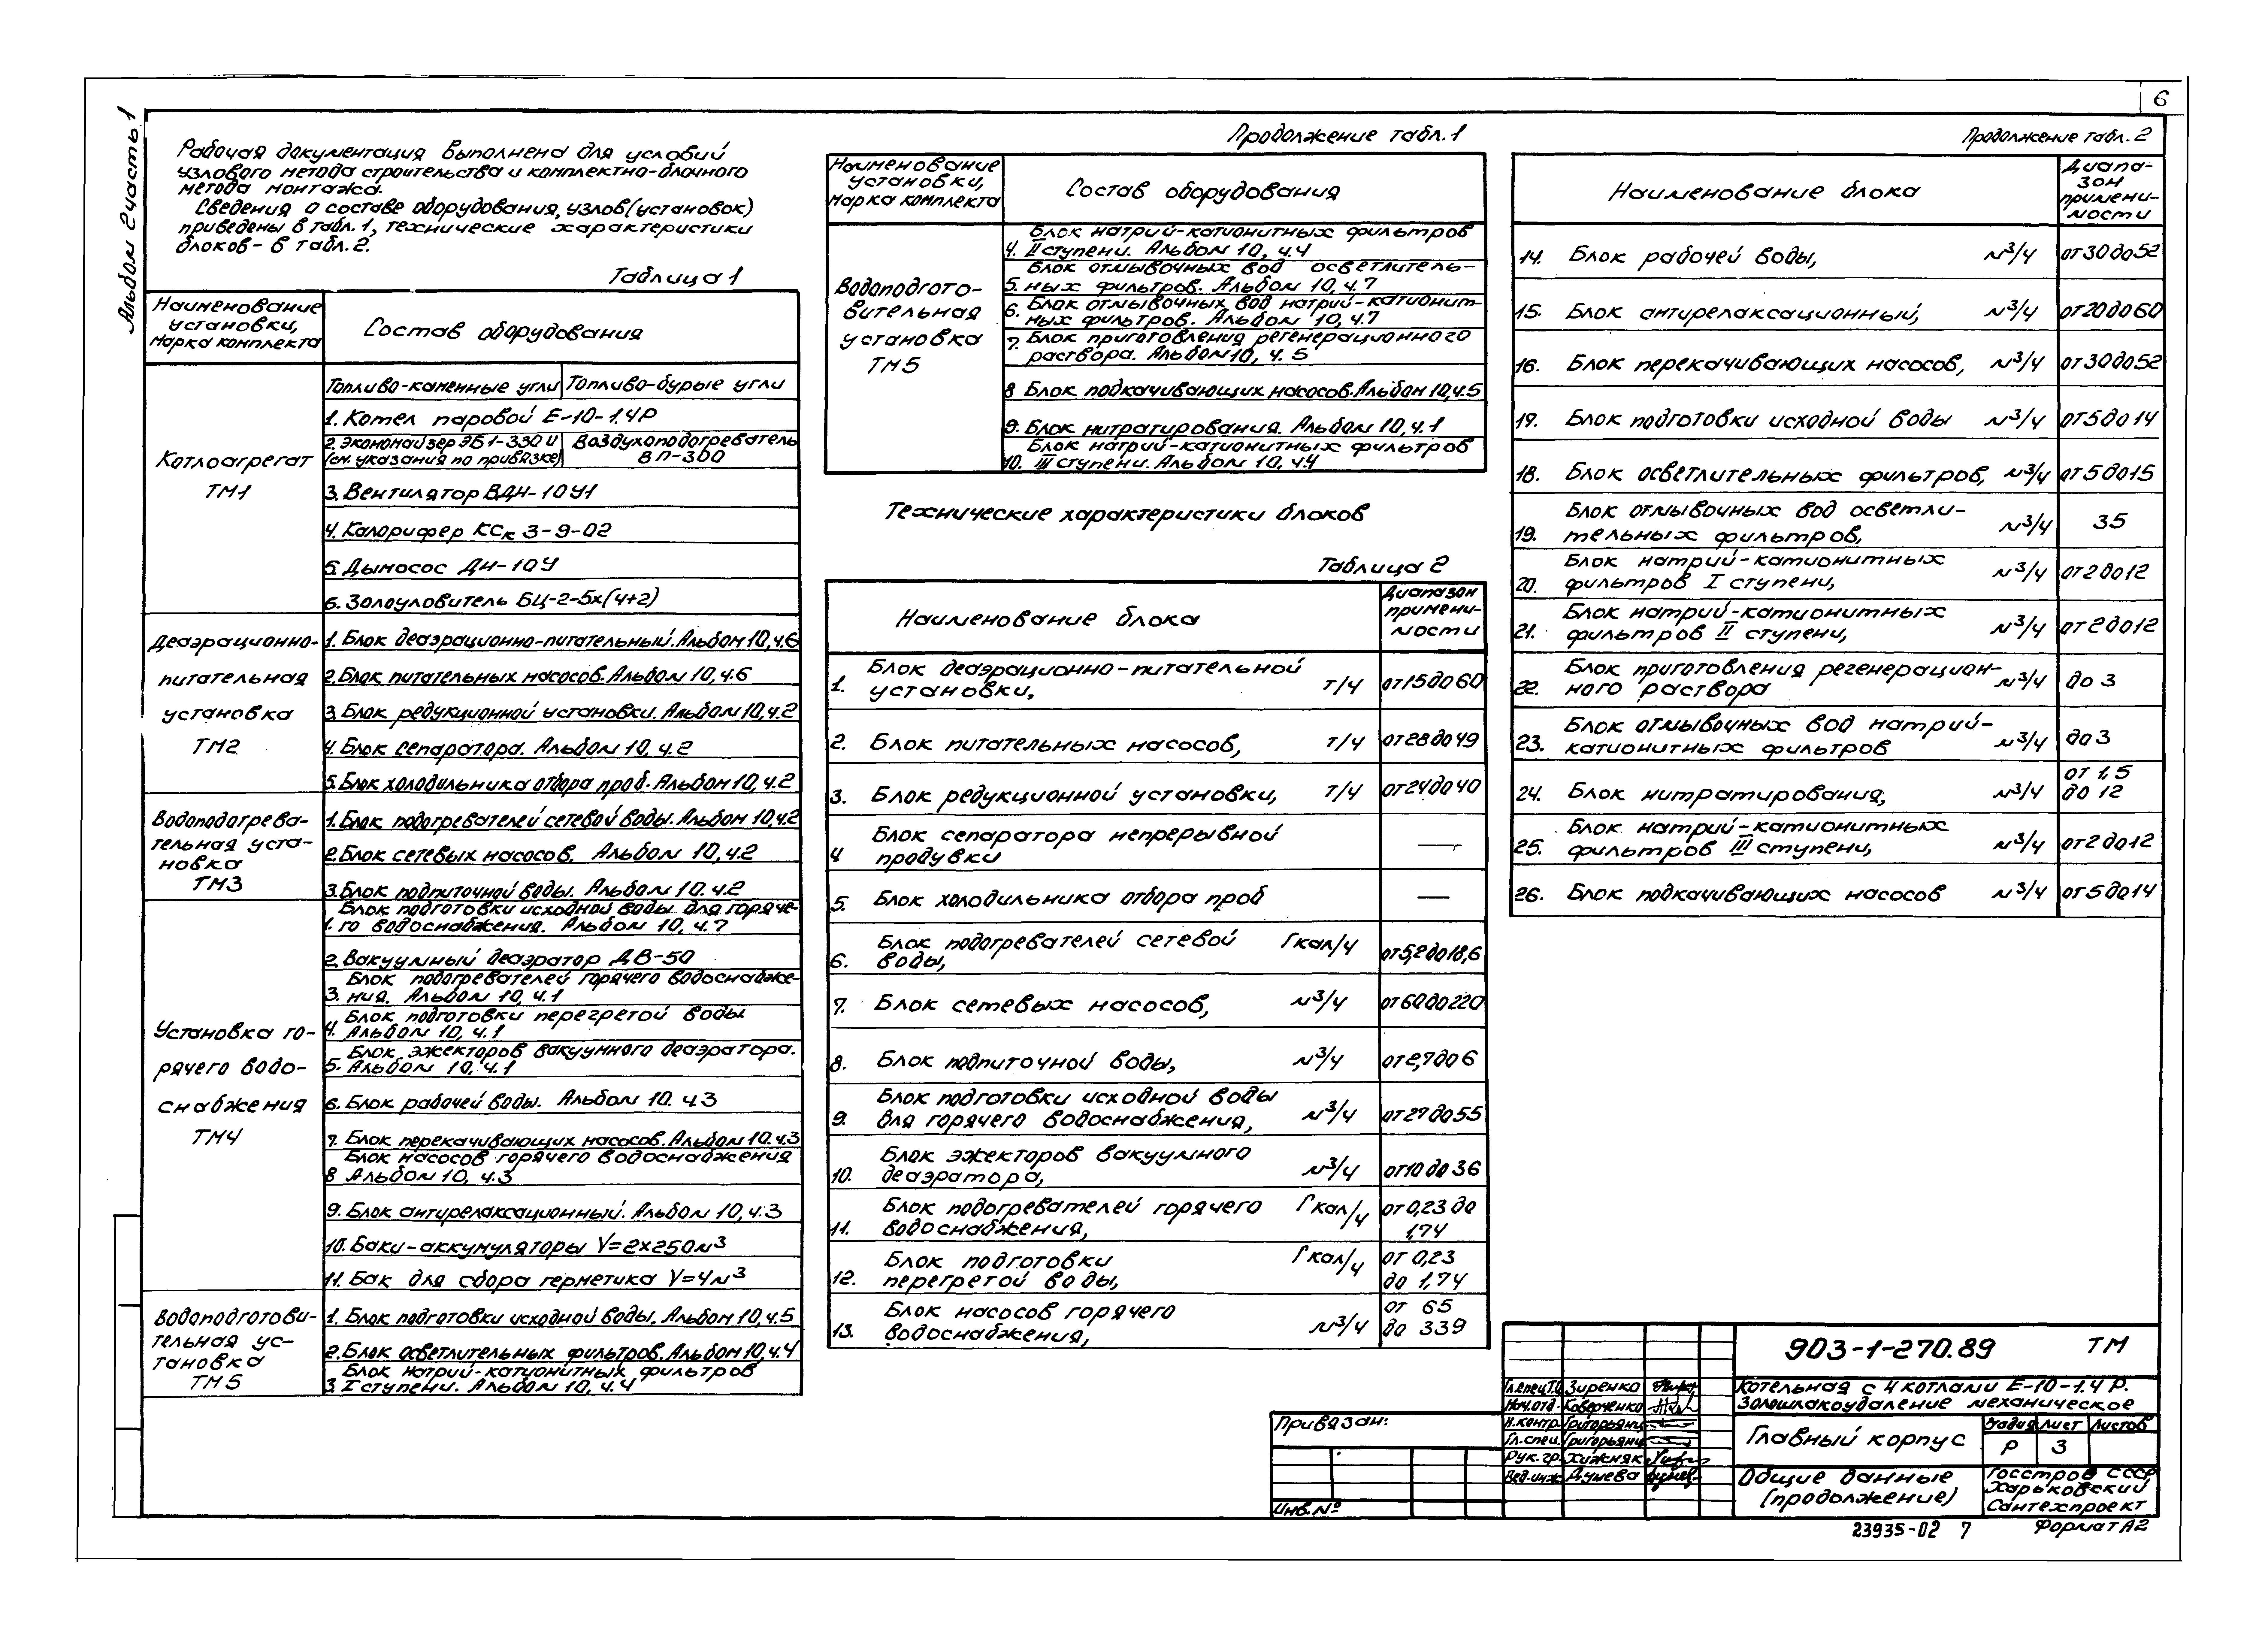 6
Альбом 2 часть 1
Рабочая документация выполнена для условий
узлового метода строительства и комплектно-блочного
метода монтажа.
Сведения о составе оборудования, узлов (установок)
приведены в табл. 1, технические характеристики
блоков - в табл. 2.
Таблица 1
Наименование установки, марка комплекта
Состав оборудования
Котлоагрегат
ТМ1
Топливо-каменные угли
Топливо-бурые угли
1. Котел паровой Е-10-1,4Р
2. Экономайзер ЭБ1-330И
(см. указания по привязке)
Воздухоподогреватель
ВП-300
3. Вентилятор ВДН-10У1
4. Калорифер КСк 3-9-02
5. Дымосос ДН-10У
6. Золоуловитель БЦ-2-5х(4+2)
Деаэрационно-
питательная
установка
ТМ2
1. Блок деаэрационно-питательный. Альбом 10, ч.6
2. Блок питательных насосов. Альбом 10, ч.6
3. Блок редукционной установки. Альбом 10, ч.2
4. Блок сепаратора. Альбом 10, ч.2
5. Блок холодильника отбора проб. Альбом 10, ч.2
Водоподогрева-
тельная уста-
новка
ТМ3
1. Блок подогревателей сетевой воды. Альбом 10, ч.2
2. Блок сетевых насосов. Альбом 10, ч.2
3. Блок подпиточной воды. Альбом 10. ч.2
Установка го-
рячего водо-
снабжения
ТМ4
Блок подготовки исходной воды для горяче-
1. го водоснабжения. Альбом 10, ч.7
2. Вакуумный деаэратор ДВ-50
Блок подогревателей горячего водоснабже-
3. ния. Альбом 10, ч.1
Блок подготовки перегретой воды
4. Альбом 10, ч.1
Блок эжекторов вакуумного деаэратора.
5. Альбом 10, ч.1
6. Блок рабочей воды. Альбом 10. ч3
7. Блок перекачивающих насосов. Альбом 10. ч.3
Блок насосов горячего водоснабжения
8 Альбом 10, ч.3
9. Блок антирелаксационный. Альбом 10, ч.3
10. Баки-аккумуляторы V=2х250м³
11. Бак для сбора герметика V=4м³
Водоподготови-
тельная ус-
тановка
ТМ5
1. Блок подготовки исходной воды. Альбом 10, ч.5
2. Блок осветлительных фильтров. Альбом 10, ч.4
Блок натрий-катионитных фильтров
3. I ступени. Альбом 10, ч.4
Продолжение табл. 1
Наименование
установки,
марка комплекта
Состав оборудования
Водоподгото-
вительная
установка
ТМ5
Блок натрий-катионитных фильтров
4. II ступени. Альбом 10, ч.4
Блок отмывочных вод осветлитель-
5. ных фильтров. Альбом 10, ч.7
6. Блок отмывочных вод натрий-катионит-
ных фильтров. Альбом 10, ч.7
7. Блок приготовления регенерационного
раствора. Альбом 10, ч. 5
8 Блок подкачивающих насосов. Альбом 10, ч.5
9. Блок нитратирования. Альбом 10, ч.1
Блок натрий-катионитных фильтров
10. III ступени. Альбом 10, ч.4
Технические характеристики блоков
Таблица 2
Наименование блока
Диапазон
примени-
мости
1. Блок деаэрационно-питательной
установки, т/ч от 15 до 60
2. Блок питательных насосов, т/ч от 28 до 49
3. Блок редукционной установки, т/ч от 24 до 40
4 Блок сепаратора непрерывной
продувки —
5. Блок холодильника отбора проб —
6. Блок подогревателей сетевой
воды, Гкал/ч от 5,2 до 18,6
7. Блок сетевых насосов, м³/ч от 60 до 220
8. Блок подпиточной воды, м³/ч от 2,7 до 6
9. Блок подготовки исходной воды
для горячего водоснабжения, м³/ч от 27 до 55
10. Блок эжекторов вакуумного
деаэратора, м³/ч от 10 до 36
11. Блок подогревателей горячего
водоснабжения, Гкал/ч от 0,23 до 1,74
12. Блок подготовки
перегретой воды, Гкал/ч от 0,23 до 1,74
13. Блок насосов горячего
водоснабжения, м³/ч от 65 до 339
Продолжение табл. 2
Наименование блока
Диапа-
зон
примени-
мости
14. Блок рабочей воды, м³/ч от 30 до 52
15. Блок антирелаксационный, м³/ч от 20 до 60
16. Блок перекачивающих насосов, м³/ч от 30 до 52
17. Блок подготовки исходной воды м³/ч от 5 до 14
18. Блок осветлительных фильтров, м³/ч от 5 до 15
19. Блок отмывочных вод осветли-
тельных фильтров, м³/ч 35
20. Блок натрий-катионитных
фильтров I ступени, м³/ч от 2 до 12
21. Блок натрий-катионитных
фильтров II ступени, м³/ч от 2 до 12
22. Блок приготовления регенерацион-
ного раствора м³/ч до 3
23. Блок отмывочных вод натрий-
катионитных фильтров м³/ч до 3
24. Блок нитратирования, м³/ч от 1,5 до 12
25. Блок натрий-катионитных
фильтров III ступени, м³/ч от 2 до 12
26. Блок подкачивающих насосов м³/ч от 5 до 14
Привязан:
Инв. №
Гл.спец.Т.О. Зиренко
Нач.отд. Коверченко
Н.контр. Григорьянц
Гл.спец. Григорьянц
Рук.гр. Хижняк
Вед.инж. Дунева
903-1-270.89 ТМ
Котельная с 4 котлами Е-10-1.4 Р.
Золошлакоудаление механическое
Главный корпус
Стадия Лист Листов
Р 3
Общие данные
(продолжение)
Госстрой СССР
Харьковский
Сантехпроект
23935-02 7
Формат А2